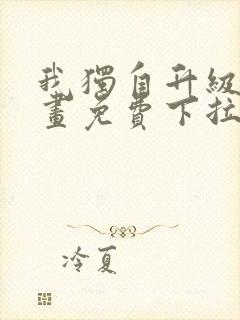 我獨自升級
畫免費下拉
冷夏